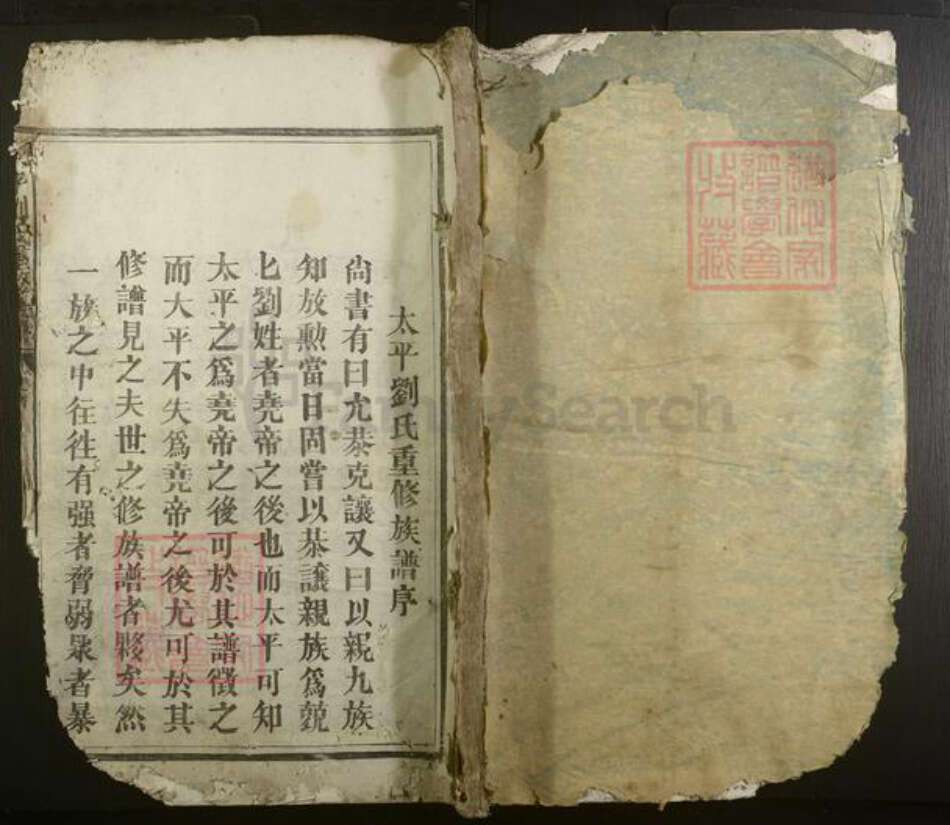 太平劉氏重修族譜序
尚書有曰允恭克讓又曰以親九族
知放勲當日固嘗以恭讓親族爲競
劉姓者堯帝之後也而太平可知
太平之爲堯帝之後可於其譜徵之
而大平不失爲堯帝之後尤可於其
修譜見之夫世之修族譜者夥矣然
一族之中往徃有强者脅弱衆者暴
譜學會
收藏
FamilySearch